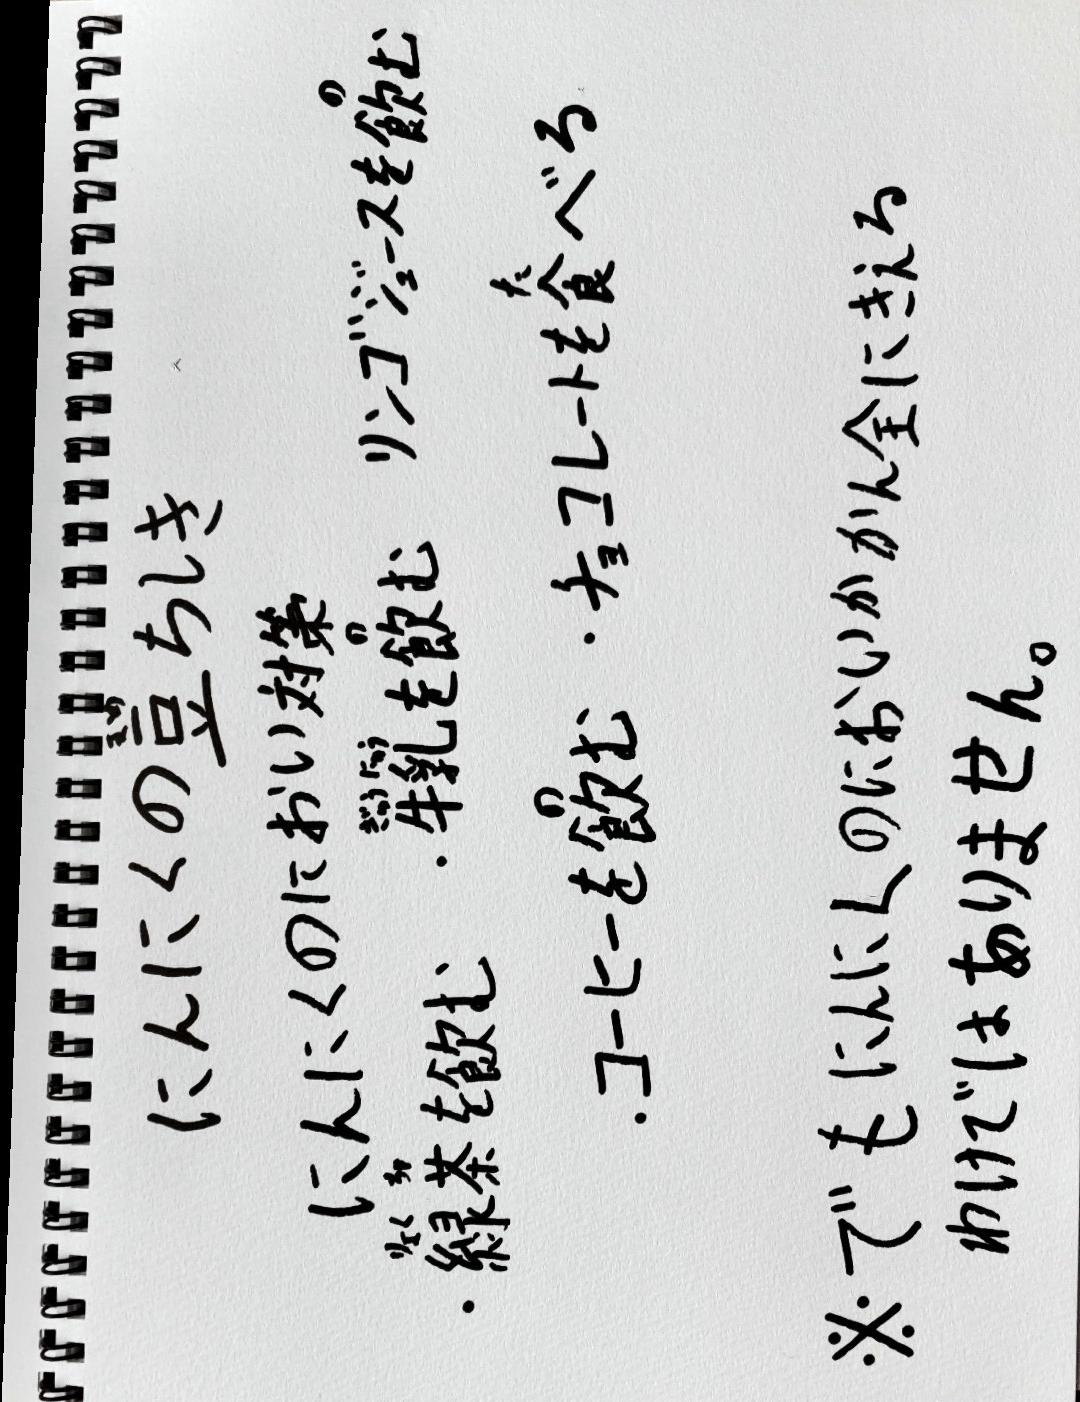 にんにくの豆ちしき
にんにくのにおい対策
・緑茶を飲む ・牛乳を飲む リンゴジュースを飲む
・コーヒーを飲む ・チョコレートを食べる
※でもにんにくのにおいがかん全にきえる
わけではありません。